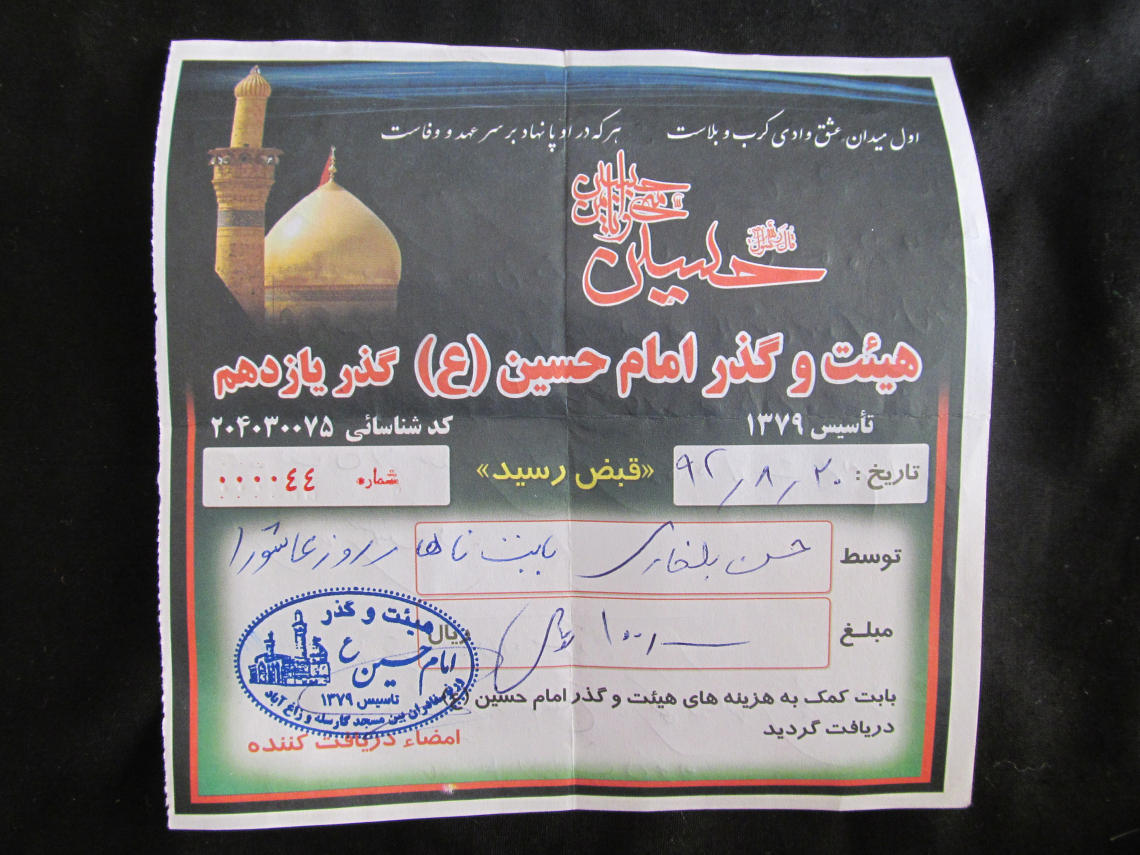 اول میدان عشق وادی کرب و بلاست هرکه در او پا نهاد بر سر عهد و وفاست
حسین
هیئت و گذر امام حسین (ع) گذر یازدهم
تأسیس ۱۳۷۹
کد شناسائی ۲۰۴۰۳۰۰۷۵
تاریخ : ۹۲/۸/۲۰
«قبض رسید»
شماره ۰۰۰۰۴۴
توسط حسن بلخاری بابت ناهار روز عاشورا
مبلغ ۱۰۰/۰۰۰ ریال
بابت کمک به هزینه های هیئت و گذر امام حسین (ع)
دریافت گردید
امضاء دریافت کننده
هیئت و گذر
امام حسین ع
تاسیس ۱۳۷۹
بین مسجد گارسله و زاغ آباد